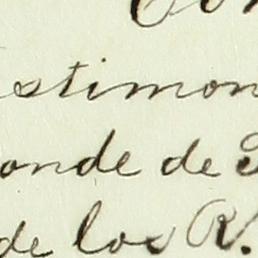 Con
estimon
onde de
de los R.